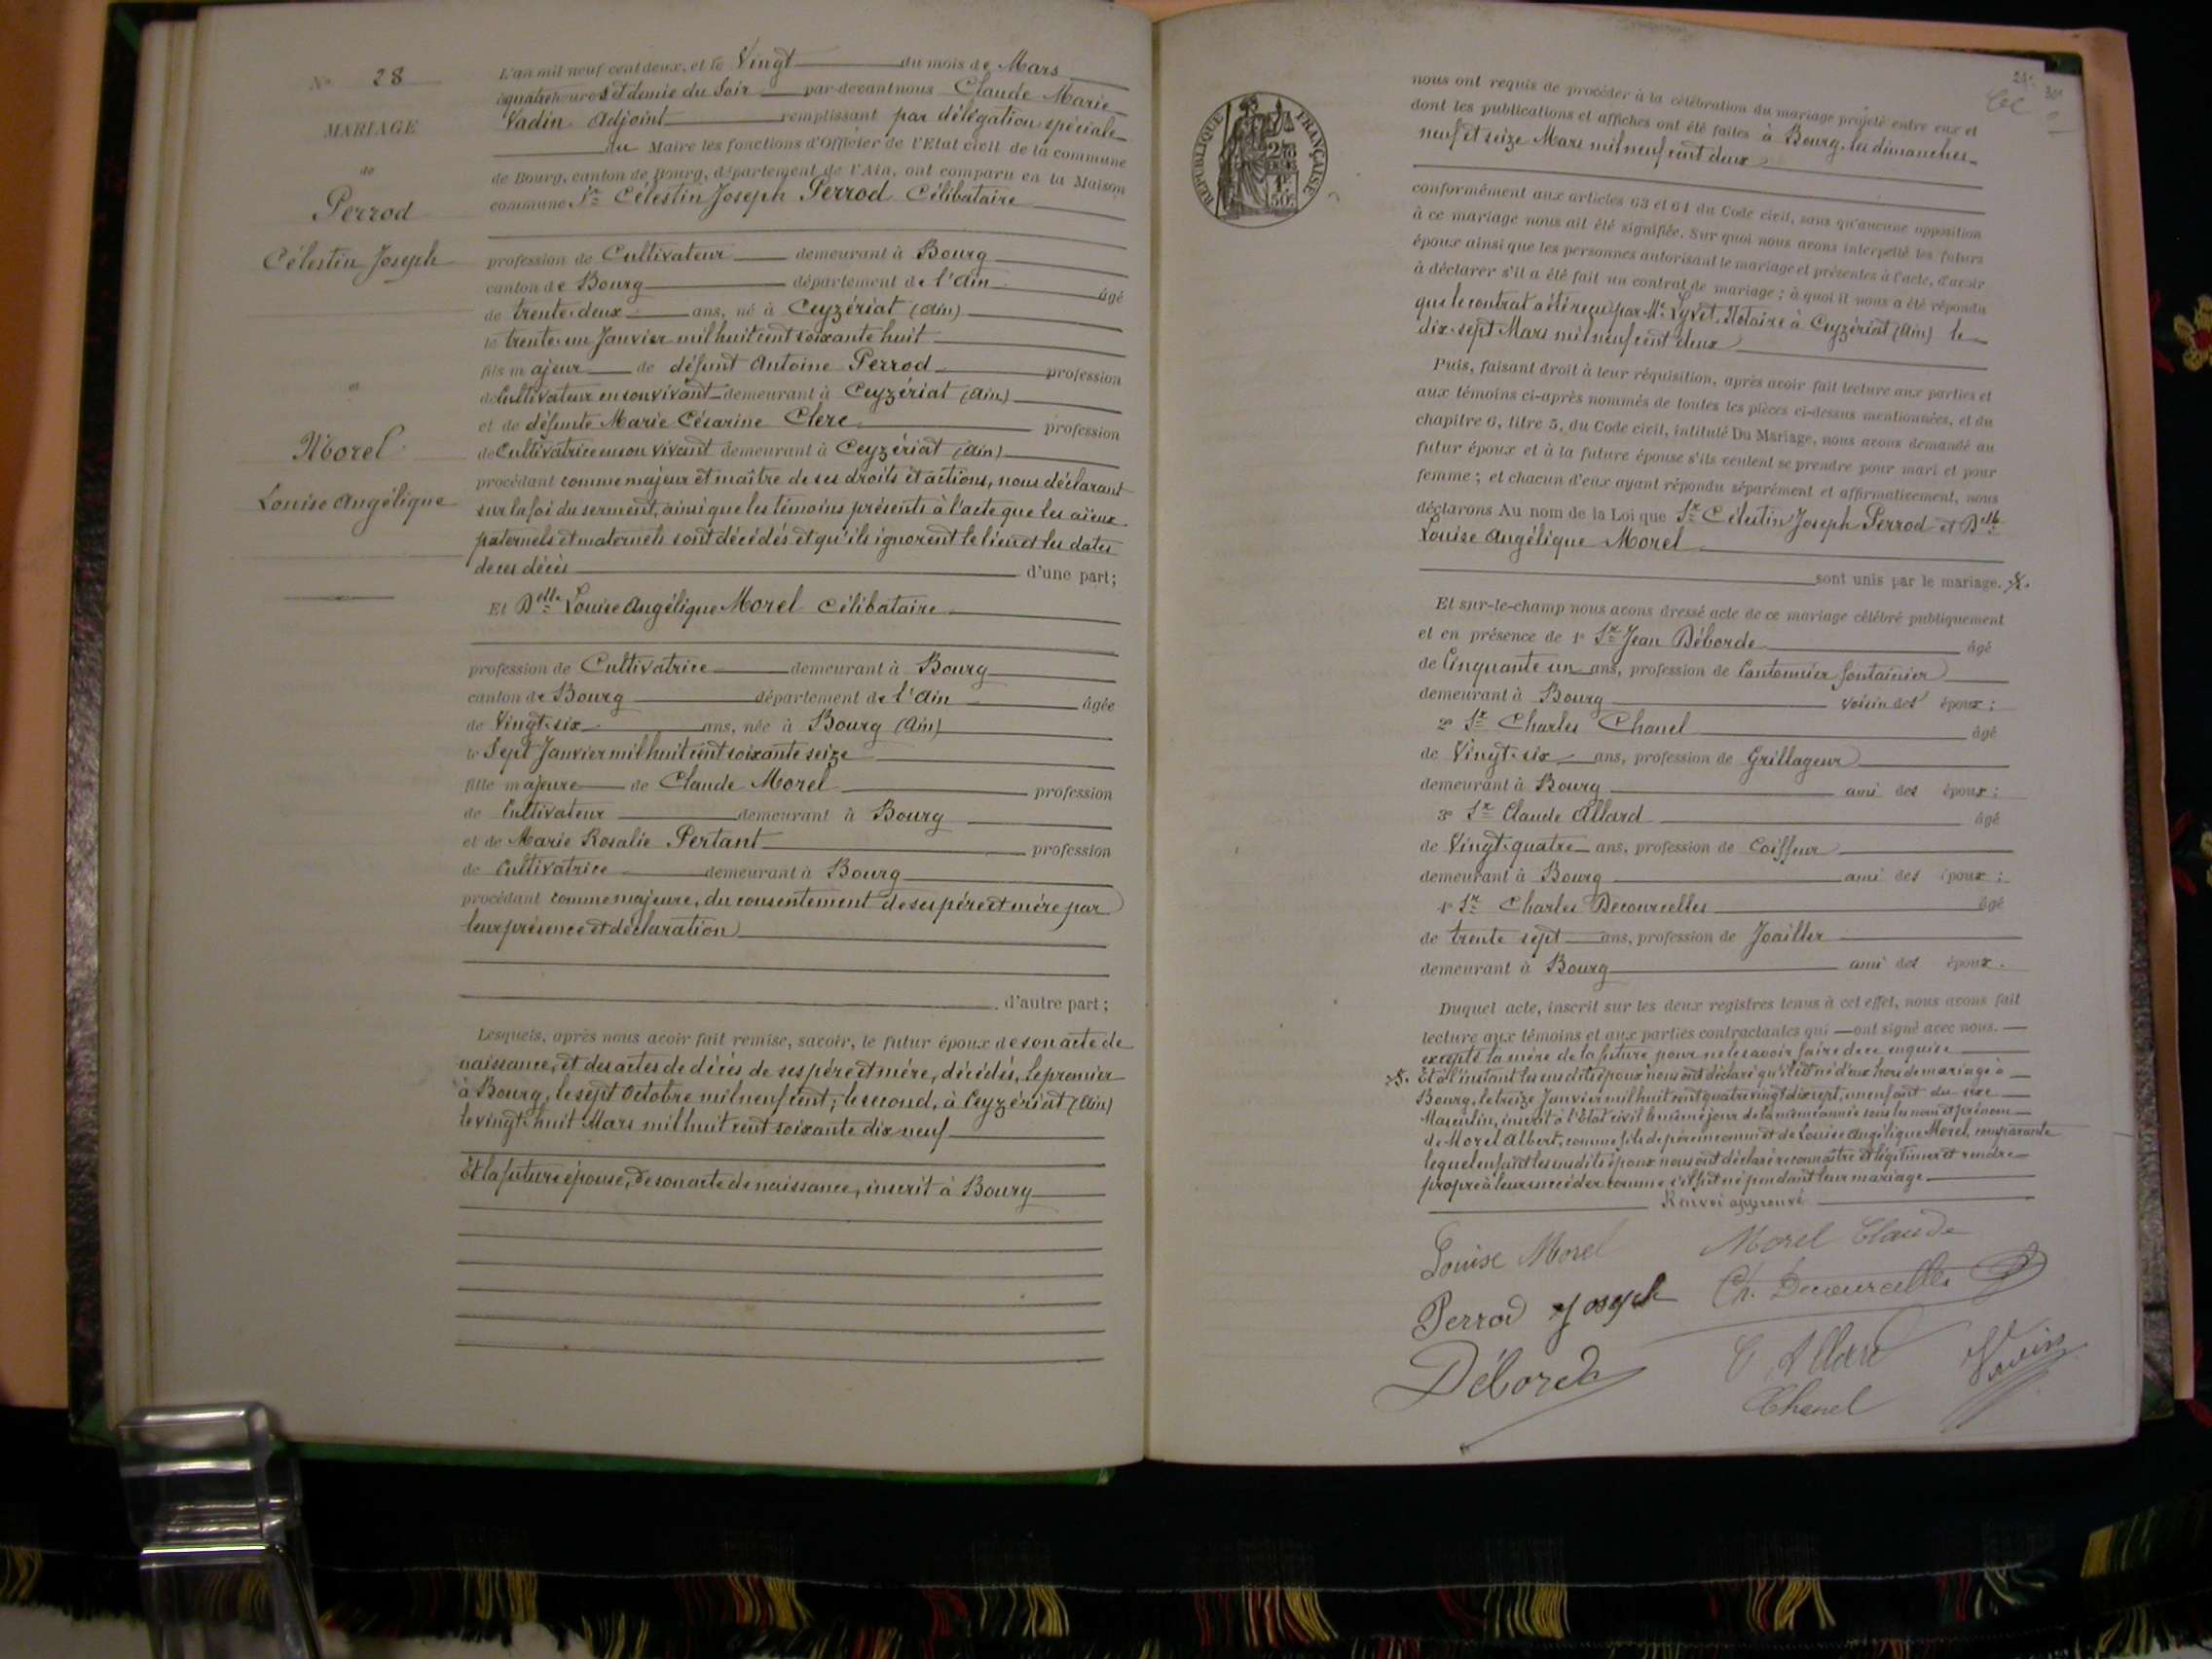 N° 28
MARIAGE
de
Perrod
Célestin Joseph
et
Morel
Louise Angélique
L'an mil neuf cent deux, et le Vingt du mois de Mars
à quatre heures et demie du Soir par-devant nous Claude Marie
Vadin Adjoint remplissant par délégation spéciale
du Maire les fonctions d'Officier de l'Etat civil de la commune
de Bourg, canton de Bourg, département de l'Ain, ont comparu en la Maison
commune Sr Célestin Joseph Perrod Célibataire
profession de Cultivateur demeurant à Bourg
canton de Bourg département de l'Ain âgé
de trente-deux ans, né à Ceyzériat (Ain)
le trente-un Janvier mil huit cent soixante huit
fils majeur de défunt Antoine Perrod profession
de Cultivateur en son vivant demeurant à Ceyzériat (Ain)
et de défunte Marie Césarine Clerc profession
de Cultivatrice en son vivant demeurant à Ceyzériat (Ain)
procédant comme majeur et maître de ses droits et actions, nous déclarant
sur la foi du serment, ainsi que les témoins présents à l'acte que les aïeux
paternels et maternels sont décédés et qu'ils ignorent le lieu et les dates
de ces décès d'une part;
Et Delle Louise Angélique Morel Célibataire
profession de Cultivatrice demeurant à Bourg
canton de Bourg département de l'Ain âgée
de Vingt-six ans, née à Bourg (Ain)
le Sept Janvier mil huit cent soixante seize
fille majeure de Claude Morel profession
de Cultivateur demeurant à Bourg
et de Marie Rosalie Pertant profession
de Cultivatrice demeurant à Bourg
procédant comme majeure, du consentement de ses père et mère par
leur présence et déclaration
d'autre part;
Lesquels, après nous avoir fait remise, savoir, le futur époux de son acte de
naissance, et des actes de décès de ses père et mère, décédés, le premier
à Bourg, le sept Octobre mil neuf cent; le second, à Ceyzériat (Ain)
le vingt-huit Mars mil huit cent soixante dix neuf
Et la future épouse, de son acte de naissance, inscrit à Bourg
REPUBLIQUE FRANÇAISE
nous ont requis de procéder à la célébration du mariage projeté entre eux et
dont les publications et affiches ont été faites à Bourg, les dimanches
neuf et seize Mars mil neuf cent deux
conformément aux articles 63 et 64 du Code civil, sans qu'aucune opposition
à ce mariage nous ait été signifiée. Sur quoi nous avons interpellé les futurs
époux ainsi que les personnes autorisant le mariage et présentes à l'acte, d'avoir
à déclarer s'il a été fait un contrat de mariage; à quoi il nous a été répondu
que le contrat a été reçu par Me Lyvet, Notaire à Ceyzériat (Ain) le
dix-sept Mars mil neuf cent deux
Puis, faisant droit à leur réquisition, après avoir fait lecture aux parties et
aux témoins ci-après nommés de toutes les pièces ci-dessus mentionnées, et du
chapitre 6, titre 5, du Code civil, intitulé Du Mariage, nous avons demandé au
futur époux et à la future épouse s'ils veulent se prendre pour mari et pour
femme; et chacun d'eux ayant répondu séparément et affirmativement, nous
déclarons Au nom de la Loi que Sr Célestin Joseph Perrod et Delle
Louise Angélique Morel
sont unis par le mariage.
Et sur-le-champ nous avons dressé acte de ce mariage célébré publiquement
et en présence de 1° Sr Jean Déborde âgé
de Cinquante un ans, profession de Cantonnier fontainier
demeurant à Bourg voisin des époux;
2° Sr Charles Chanel âgé
de Vingt-six ans, profession de Grillageur
demeurant à Bourg ami des époux;
3° Sr Claude Allard âgé
de Vingt-quatre ans, profession de Coiffeur
demeurant à Bourg ami des époux;
4° Sr Charles Decourcelles âgé
de trente sept ans, profession de Joailler
demeurant à Bourg ami des époux.
Duquel acte, inscrit sur les deux registres tenus à cet effet, nous avons fait
lecture aux témoins et aux parties contractantes qui ont signé avec nous.
excepté la mère de la future pour ne le savoir faire de ce enquise
Et à l'instant les susdits époux nous ont déclaré qu'il est né d'eux hors de mariage à
Bourg, le treize Janvier mil huit cent quatre vingt dix sept, un enfant du sexe
Masculin, inscrit à l'État civil le même jour de la même année sous les nom et prénom
de Morel Albert, comme fils de père inconnu et de Louise Angélique Morel, comparante
lequel enfant les susdits époux nous ont déclaré reconnaître et légitimer et rendre
propre à leur succéder comme s'il fut né pendant leur mariage
Renvoi approuvé
Louise Morel Morel Claude
Perrod Joseph Ch. Decourcelles
Déborde C Allard Vadin
Chanel